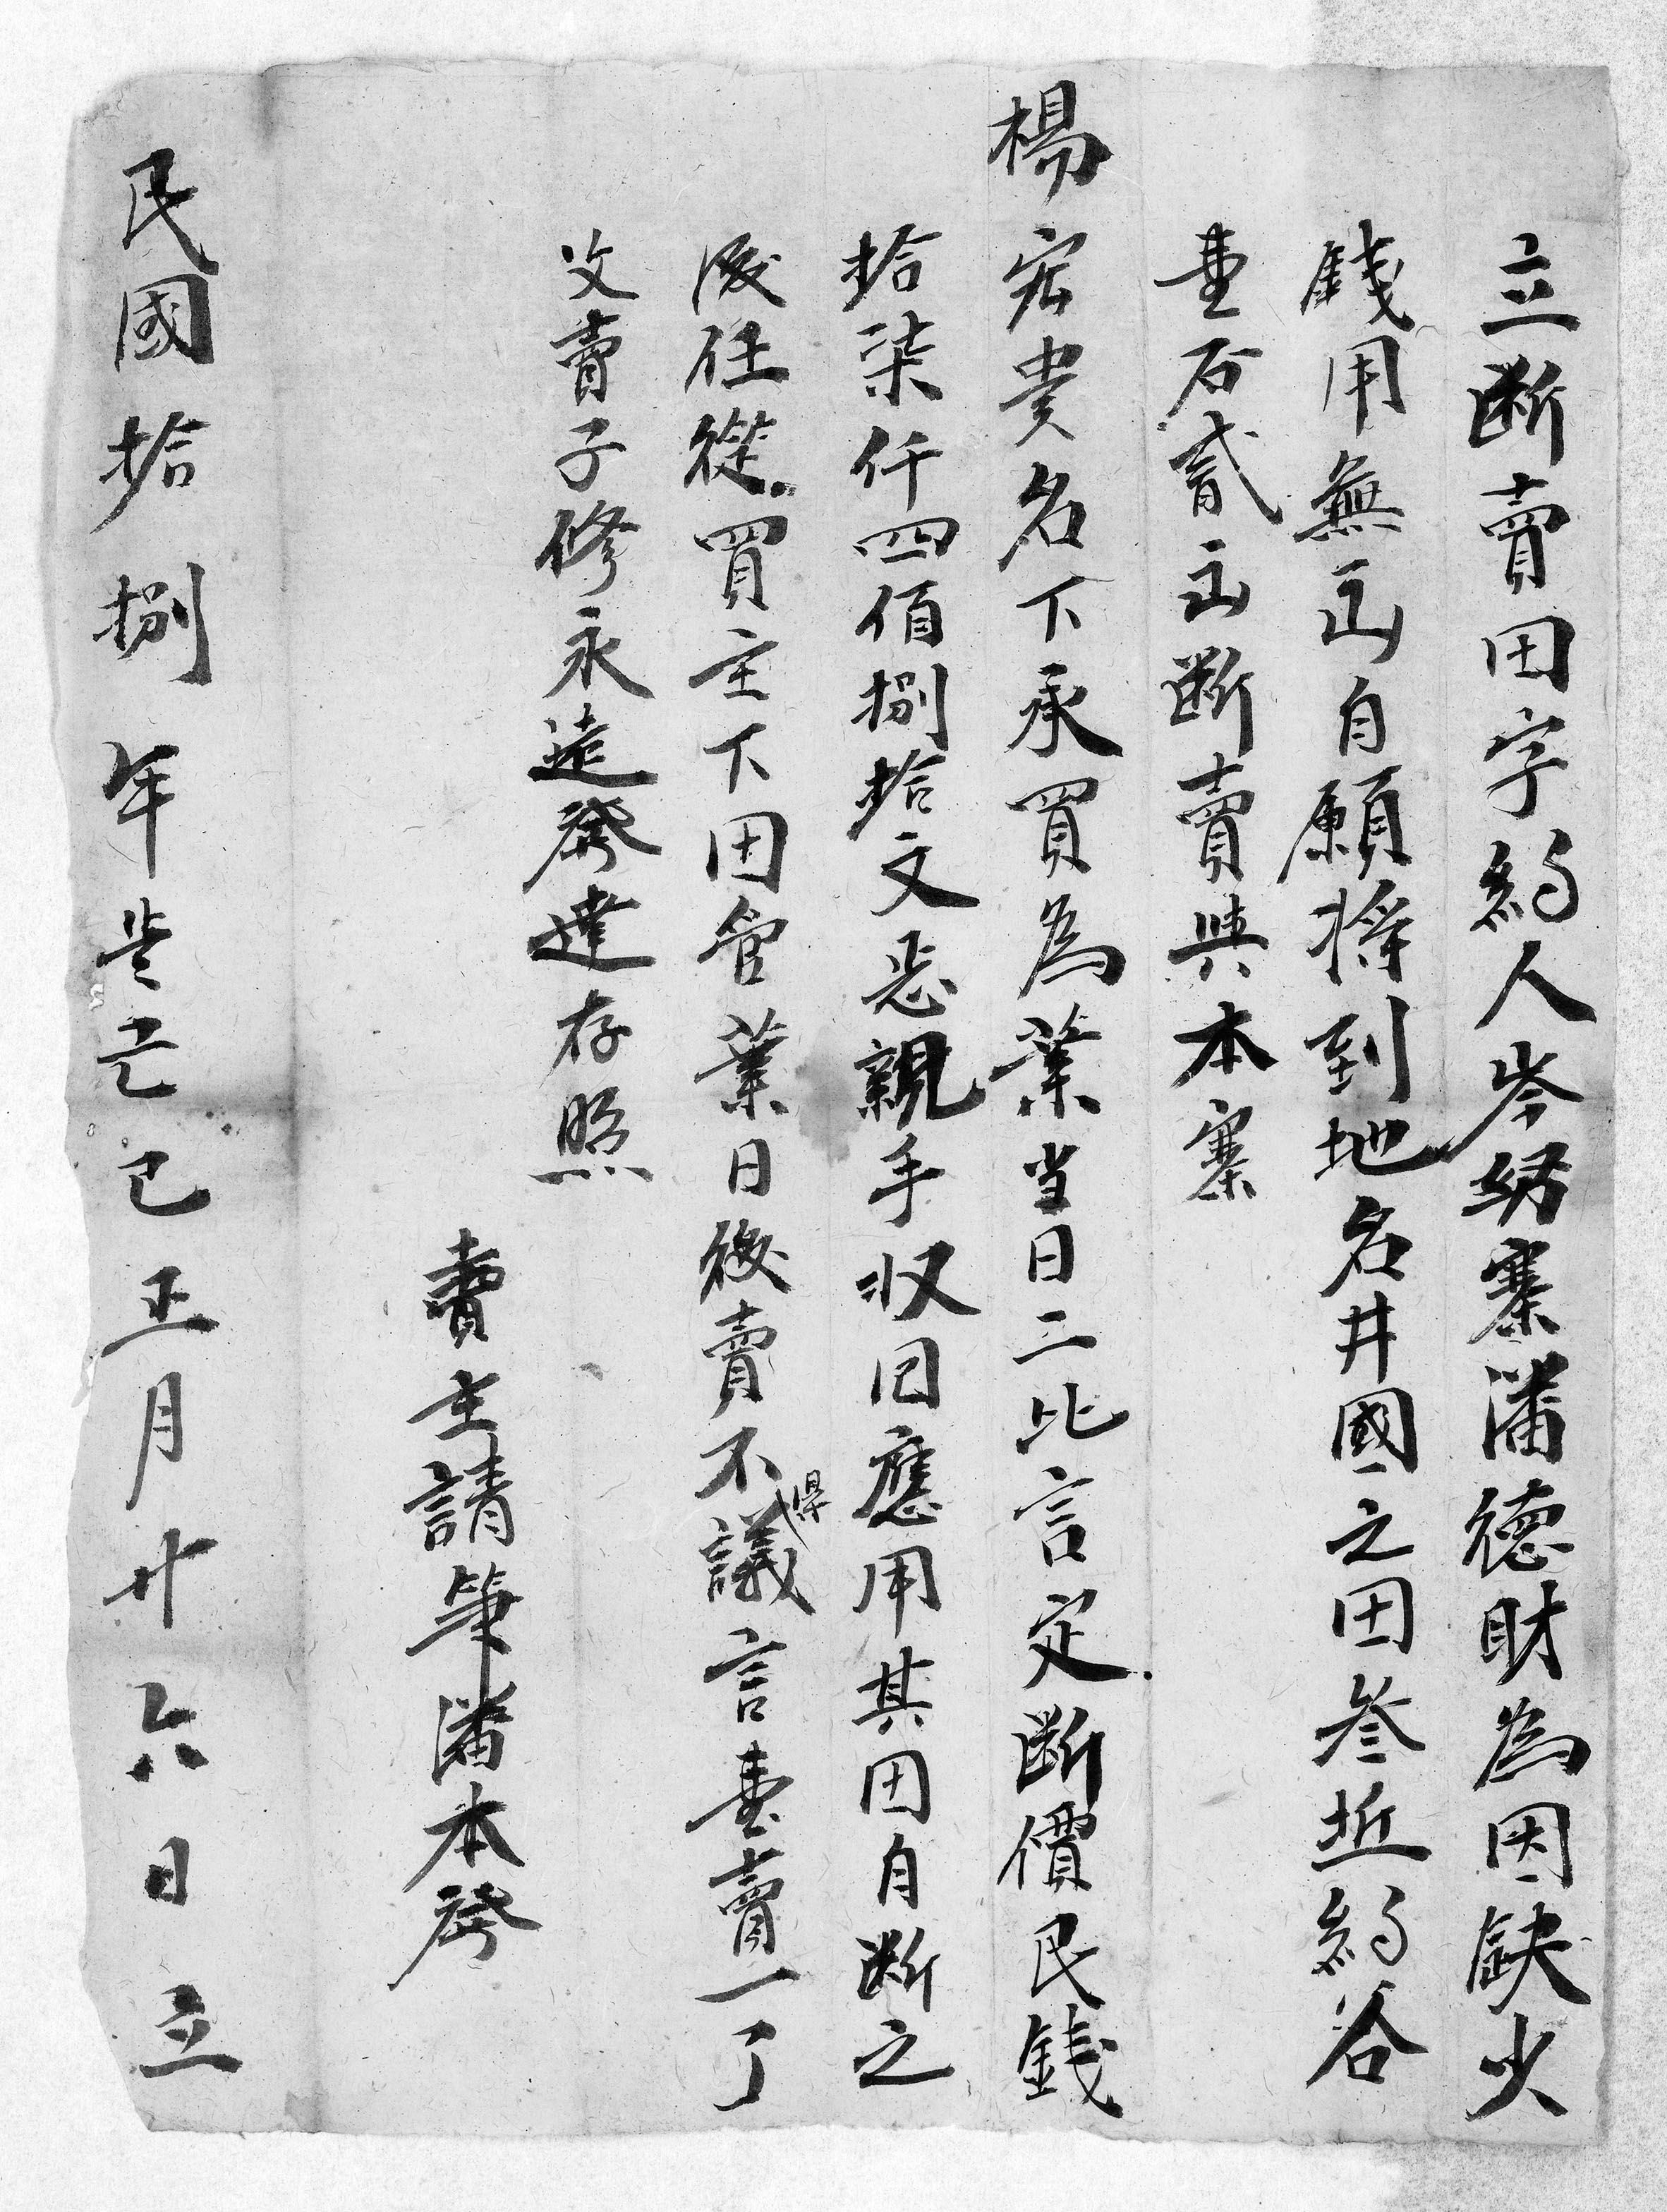 立断賣田字約人岑努寨潘德財為因缺少
錢用無出自願將到地名井國之田叁坵約谷
壹石貳出断賣與本寨
楊宏贵名下承買為業当日二比言定断價民錢
拾柒仟四佰捌拾文忠親手收回應用其田自断之
後任從買主下田管業日後賣不得議言壹賣一了
父賣子修永遠發達存照
賣主請筆潘本發
民國拾捌年岁己巳正月廿六日立